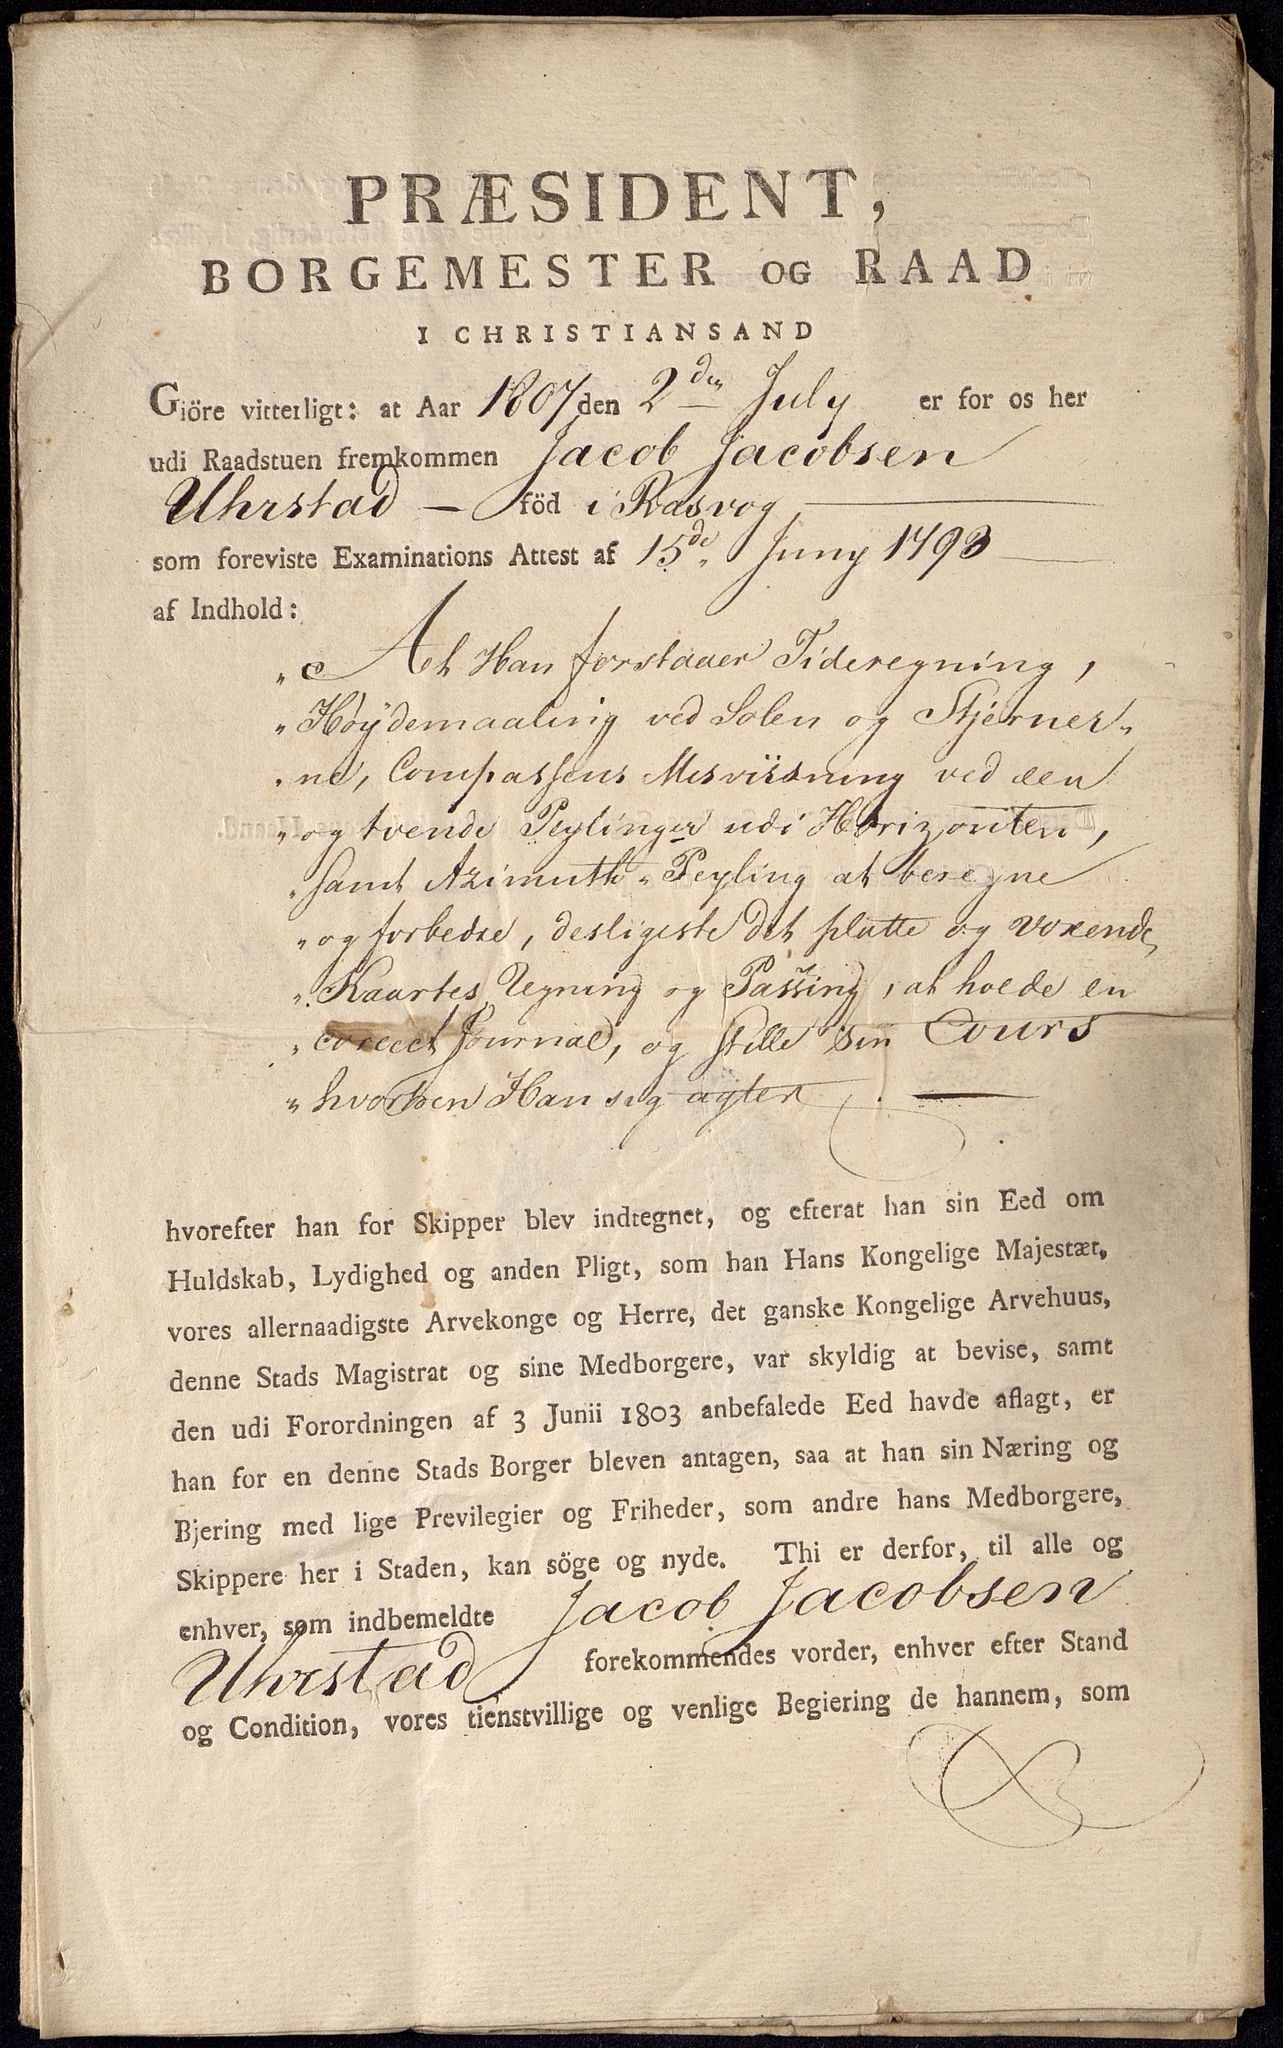 PRÆSIDENT,
BORGEMESTER OG RAAD
I CHRISTIANSAND
Giöre vitterligt: at Aar 1807 den 2den July er for os her
udi Raadstuen fremkommen Jacob Jacobsen
Uhrstad — föd i Rasvog
som foreviste Examinations Attest af 15de Juny 1793
af Indhold:
„At Han forstaaer Tideregning,
„Höydemaaling ved Solen og Stjerner„
„ne, Compassens Misviisning ved een
„og tvende Peylinger udi Horizonten,
„samt Azimuth„Peyling at beregne
„og forbedre, desligeste det platte og voxende
„Kaartes Regning og Passing, at holde en
„correct Journal, og stille sin Cours
„hvorhen Han sig agter.
hvorefter han for Skipper blev indtegnet, og efterat han sin Eed om
Huldskab, Lydighed og anden Pligt, som han Hans Kongelige Majestæt,
vores allernaadigste Arvekonge og Herre, det ganske Kongelige Arvehuus,
denne Stads Magistrat og sine Medborgere, var skyldig at bevise, samt
den udi Forordningen af 3 Junii 1803 anbefalede Eed havde aflagt, er
han for en denne Stads Borger bleven antagen, saa at han sin Næring og
Bjering med lige Previlegier og Friheder, som andre hans Medborgere,
Skippere her i Staden, kan söge og nyde. Thi er derfor, til alle og
enhver, som indbemeldte Jacob Jacobsen
Uhrstad forekommendes vorder, enhver efter Stand
og Condition, vores tienstvillige og venlige Begiering de hannem, som